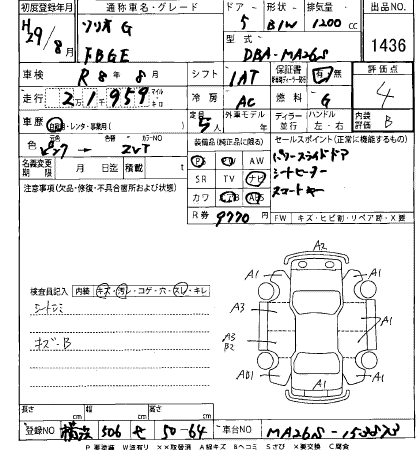 初度登録年月 通称車名・グレード ドア 形状 排気量 出品NO
H29/8月 ソリオ G 5 B/W 1200 cc
FBGE 型式 DBA-MA26S 1436
車検 R 8年 8月 シフト 1AT 保証書 有 無 評価点
走行 21,959 マイル キロ 冷房 AC 燃料 G 4
車歴 自家用・レンタ・事業用( ) 定員 5人 外車モデル ディーラー 並行 ハンドル 左・右 内装評価 B
色 元色 ピンク → 色替 カラーNO ZVT 装備品(純正品に限る) セールスポイント(正常に機能するもの)
名義変更期限 月 日迄 積載 t PS PW AW パワースライドドア
注意事項(欠品・修復・不具合箇所および状態) SR TV ナビ シートヒーター
カワ エアB ABS スマートキー
R券 9770 FW キズ・ヒビ割・リペア跡・X要
A2
A1 A1
検査員記入 内装 キズ・汚レ・コゲ・穴・スレ・キレ
シートシミ A3 A1
キズ-B A3 B2
A1 A1
A1
長さ cm 幅 cm 高さ cm
登録NO 横浜 506 せ 50-64 車台NO MA26S-153873
P 要塗装 W 波有り XX取替済 A 線キズ B ヘコミ S サビ X 要交換 C 腐食